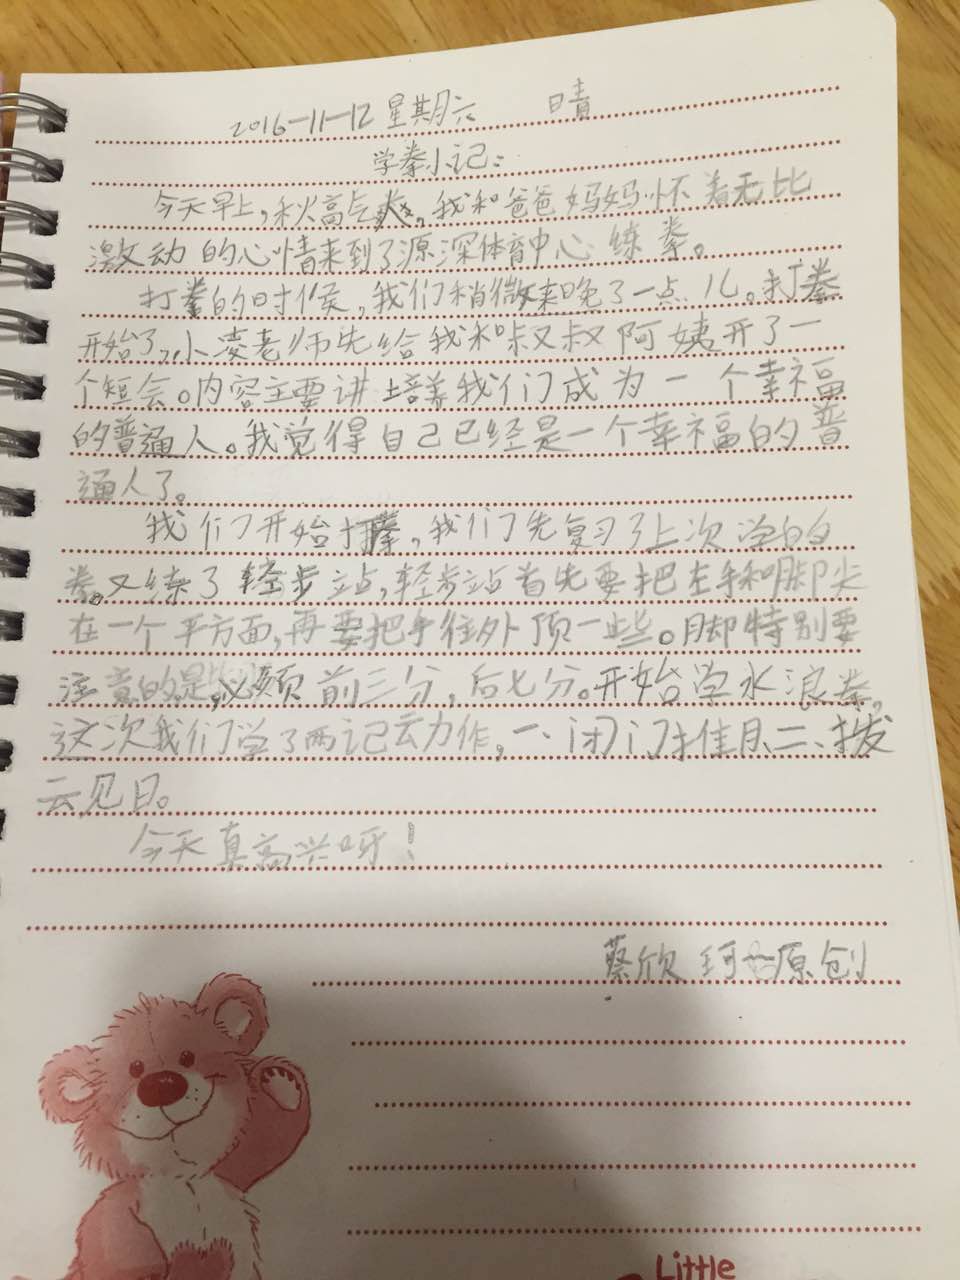 2016-11-12 星期六 晴
学拳小记:
今天早上,秋高气爽,我和爸爸妈妈怀着无比
激动的心情来到了源深体育中心练拳。
打拳的时候,我们稍微来晚了一点儿。打拳
开始了,小凌老师先给我和叔叔阿姨开了一
个短会。内容主要讲培养我们成为一个幸福
的普通人。我觉得自己已经是一个幸福的普
通人了。
我们开始打拳,我们先复习了上次学的
拳。又练了轻步站,轻步站首先要把左手和脚尖
在一个平方面,再要把手往外顶一些。脚特别要
注意的是,必须前三分,后七分。开始学水浪拳,
这次我们学了两记动作,一、闭门推月、二、拨
云见日。
今天真高兴呀!
蔡欣珂原创
Little